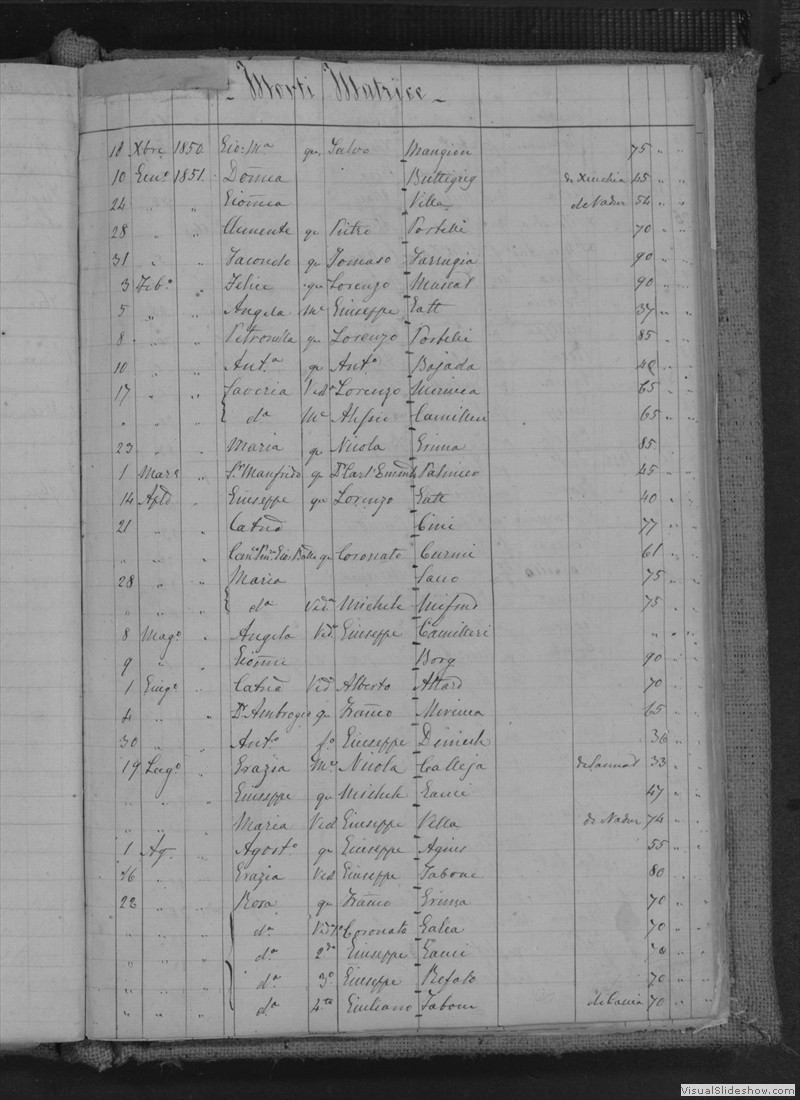 Morti Matrice
18 Xbre 1850 Gio: Ma qu. Salvo Mangion 75 " "
10 Genº 1851 Domca Buttigieg de Xeuchia 45 " "
24 " " Giomca Vella de Nadur 54 " "
28 " " Clemente qu Pietro Portelli 70 " "
31 " " Facondo qu Tomaso Farrugia 90 " "
3 Febº " Felice qu Lorenzo Muscat 90 " "
5 " " Angela Me Giuseppe Gatt 37 " "
8 " " Petronilla qu Lorenzo Portelli 85 " "
10 " " Anta qu Antº Bajada 48 " "
17 " " Saveria Vedª Lorenzo 65 " "
" " " dª Me Camilleri 65 " "
23 " " Maria qu Nicola Grima 85 " "
1 Marº " Sr Manfrido qu 45 " "
14 Aple " Giuseppe qu Lorenzo Gatt 40 " "
21 " " Catna Cini 77 " "
" " " qu Coronato Curmi 61 " "
28 " " Maria 75 " "
" " " dª Veda Michele Mifsud 75 " "
8 Magº " Angela Veda Giuseppe Camilleri " " "
9 " " Borg 90 " "
1 Giugº " Catna Ved Alberto Attard 70 " "
4 " " Dn Ambrogio qu Franco 65 " "
30 " " Antº fº Giuseppe Dimech 36 " "
19 Lugº " Grazia Me Nicola Calleja de Sannat 33 " "
" " " Giuseppe qu Michele Gauci 47 " "
" " " Maria Ved Giuseppe Vella de Nadur 74 " "
1 Ag. " Agostº qu Giuseppe Agius 55 " "
16 " " Grazia Ved Giuseppe Tabone 80 " "
22 " " Rosa qu Franco Grima 70 " "
" " " dª Veda 1º Coronato Galea 70 " "
" " " dª 2do Giuseppe Gauci 70 " "
" " " dª 3º Giuseppe Refalo 70 " "
" " " dª 4to Giuliano Tabone de Caccia 70 " "
VisualSlideshow.com